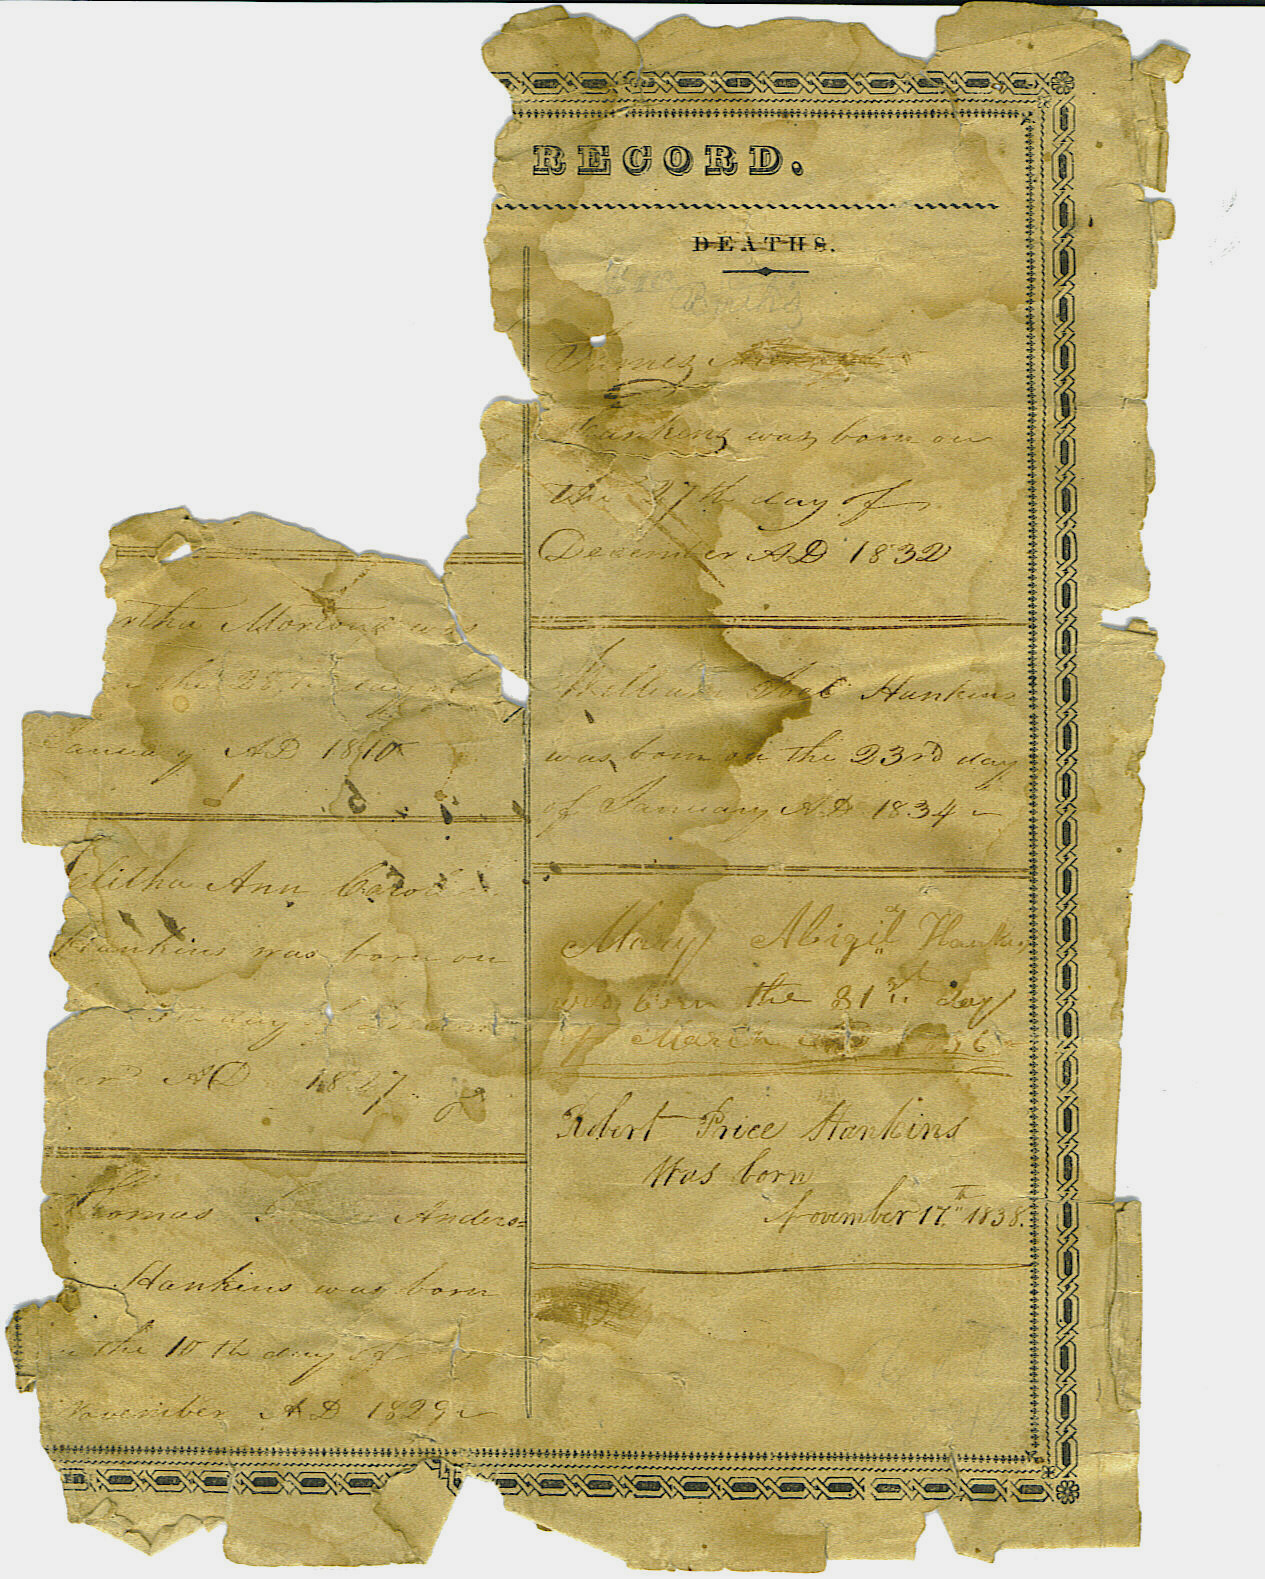 RECORD.
DEATHS.
Births
James
Hankins was born on
the 27th day of
December AD 1832
William Hankins
was born on the 23rd day
of January AD 1834
Mary Abigil Hankins
was born the 31st day
of March 1836
Robert Price Hankins
Was born
November 17th 1838.
rtha Morton was
the 28th day of
January AD 1810
litha Ann Carol
Hankins was born on
day of Decem
ber AD 1827
Thomas Anders=
Hankins was born
the 10th day of
November AD 1829